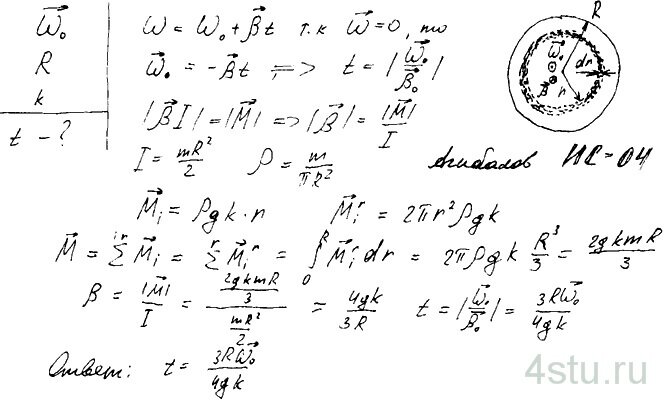 ω⃗₀
R
k
t - ?
ω = ω₀ + β⃗t т.к ω⃗ = 0, то
ω⃗₀ = -β⃗t => t = |ω⃗₀/β⃗₀|
|β⃗I| = |M⃗| => |β⃗| = |M⃗|/I
I = mR²/2 ρ = m/πR²
R
ω⃗₀
dr
β⃗
r
Агибалов НС-04
M⃗ᵢ = ρgk·r M⃗ᵢʳ = 2πr²ρgk
M⃗ = Σʳ M⃗ᵢ = Σʳ M⃗ᵢʳ = ∫₀ᴿ M⃗ᵢʳ dr = 2πρgk R³/3 = 2gkmR/3
β = |M⃗|/I = (2gkmR/3)/(mR²/2) = 4gk/3R t = |ω⃗₀/β⃗₀| = 3Rω⃗₀/4gk
Ответ: t = 3Rω⃗₀/4gk
4stu.ru